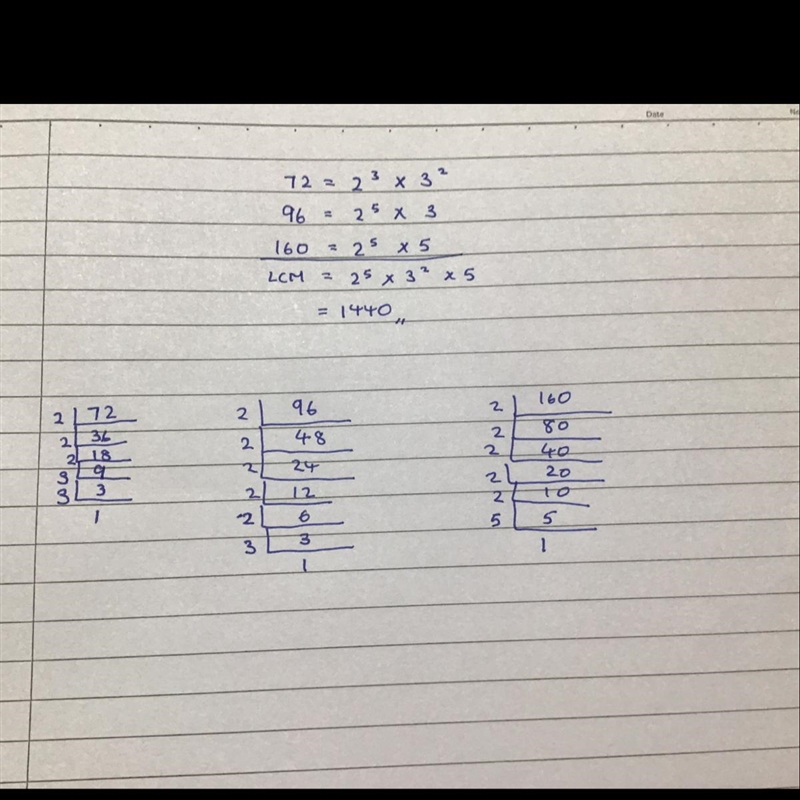 Date
72 = 2³ × 3²
96 = 2⁵ × 3
160 = 2⁵ × 5
LCM = 2⁵ × 3² × 5
= 1440,,
2 | 72
2 | 36
2 | 18
3 | 9
3 | 3
1
2 | 96
2 | 48
2 | 24
2 | 12
2 | 6
3 | 3
1
2 | 160
2 | 80
2 | 40
2 | 20
2 | 10
5 | 5
1